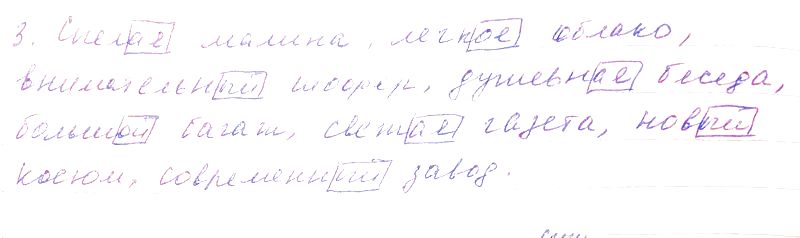 3. Спелая малина, легкое облако,
внимательный шофер, душевная беседа,
большой багаж, свежая газета, новый
костюм, современный завод.